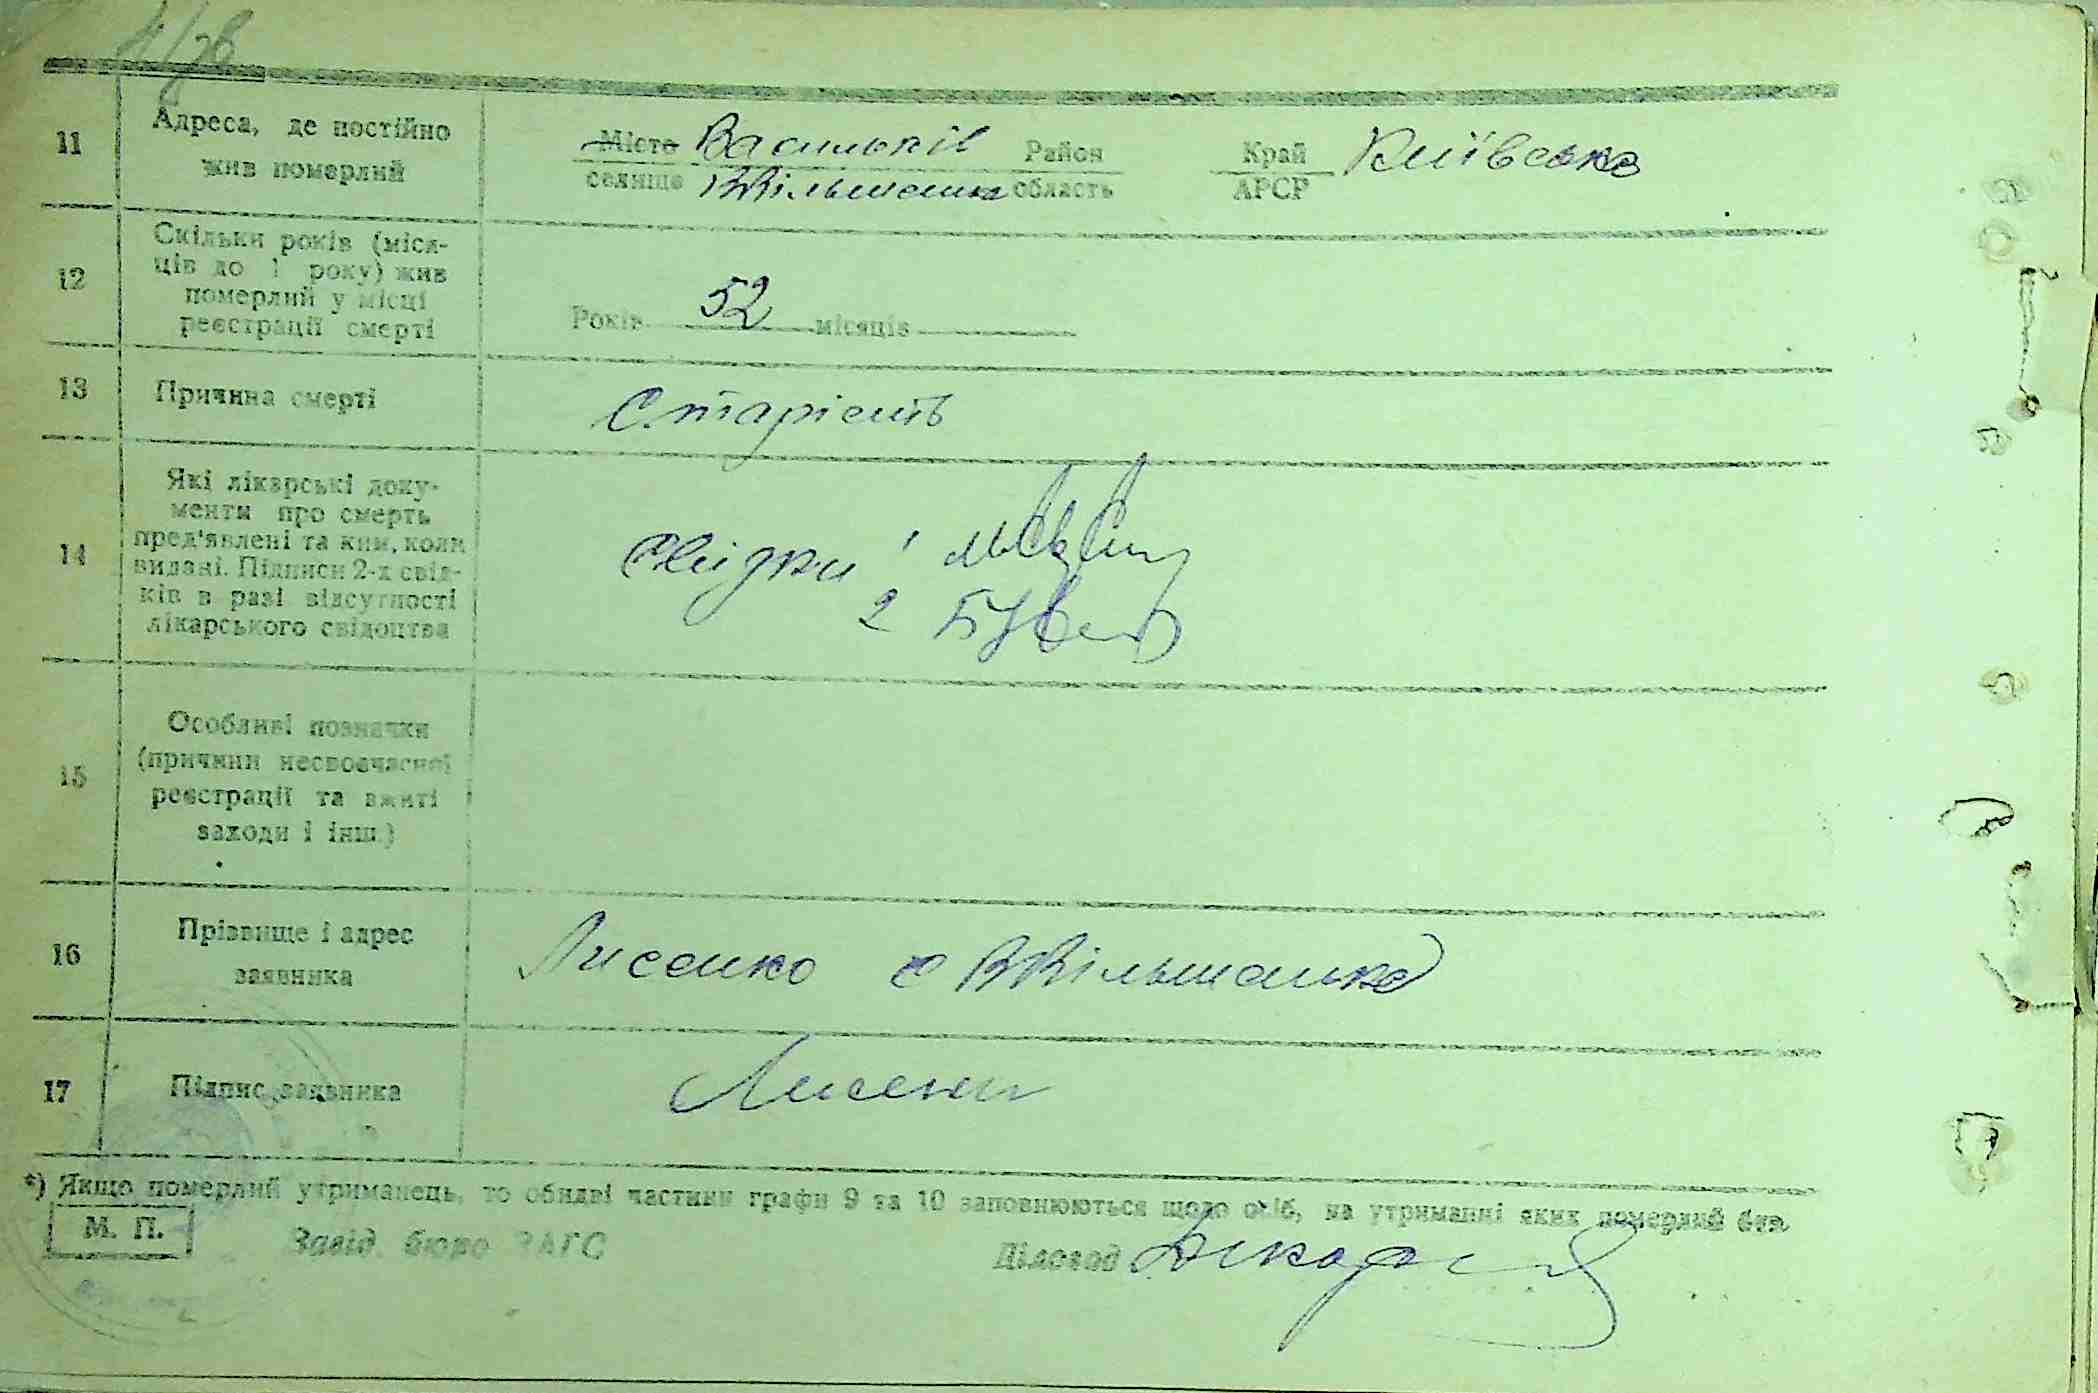 11
Адреса, де постійно
жив померлий
Місто Васильків Район
селище ВВільшанка область
Край Київська
АРСР
12
Скільки років (міся-
ців до 1 року) жив
померлий у місці
реєстрації смерті
Років 52 місяців
13
Причина смерті
Старість
14
Які лікарські доку-
менти про смерть
пред'явлені та ким, коли
видані. Підписи 2-х свід-
ків в разі відсутності
лікарського свідоцтва
свідки 1
2
15
Особливі позначки
(причини несвоєчасної
реєстрації та вжиті
заходи і інш.)
16
Прізвище і адрес
заявника
Лисенко с ВВільшанка
17
Підпис заявника
Лисенко
*) Якщо померлий утриманець, то обидві частини графи 9 та 10 заповнюються щодо осіб, на утриманні яких померлий був
М. П.
Завід. бюро ЗАГС
Діловод